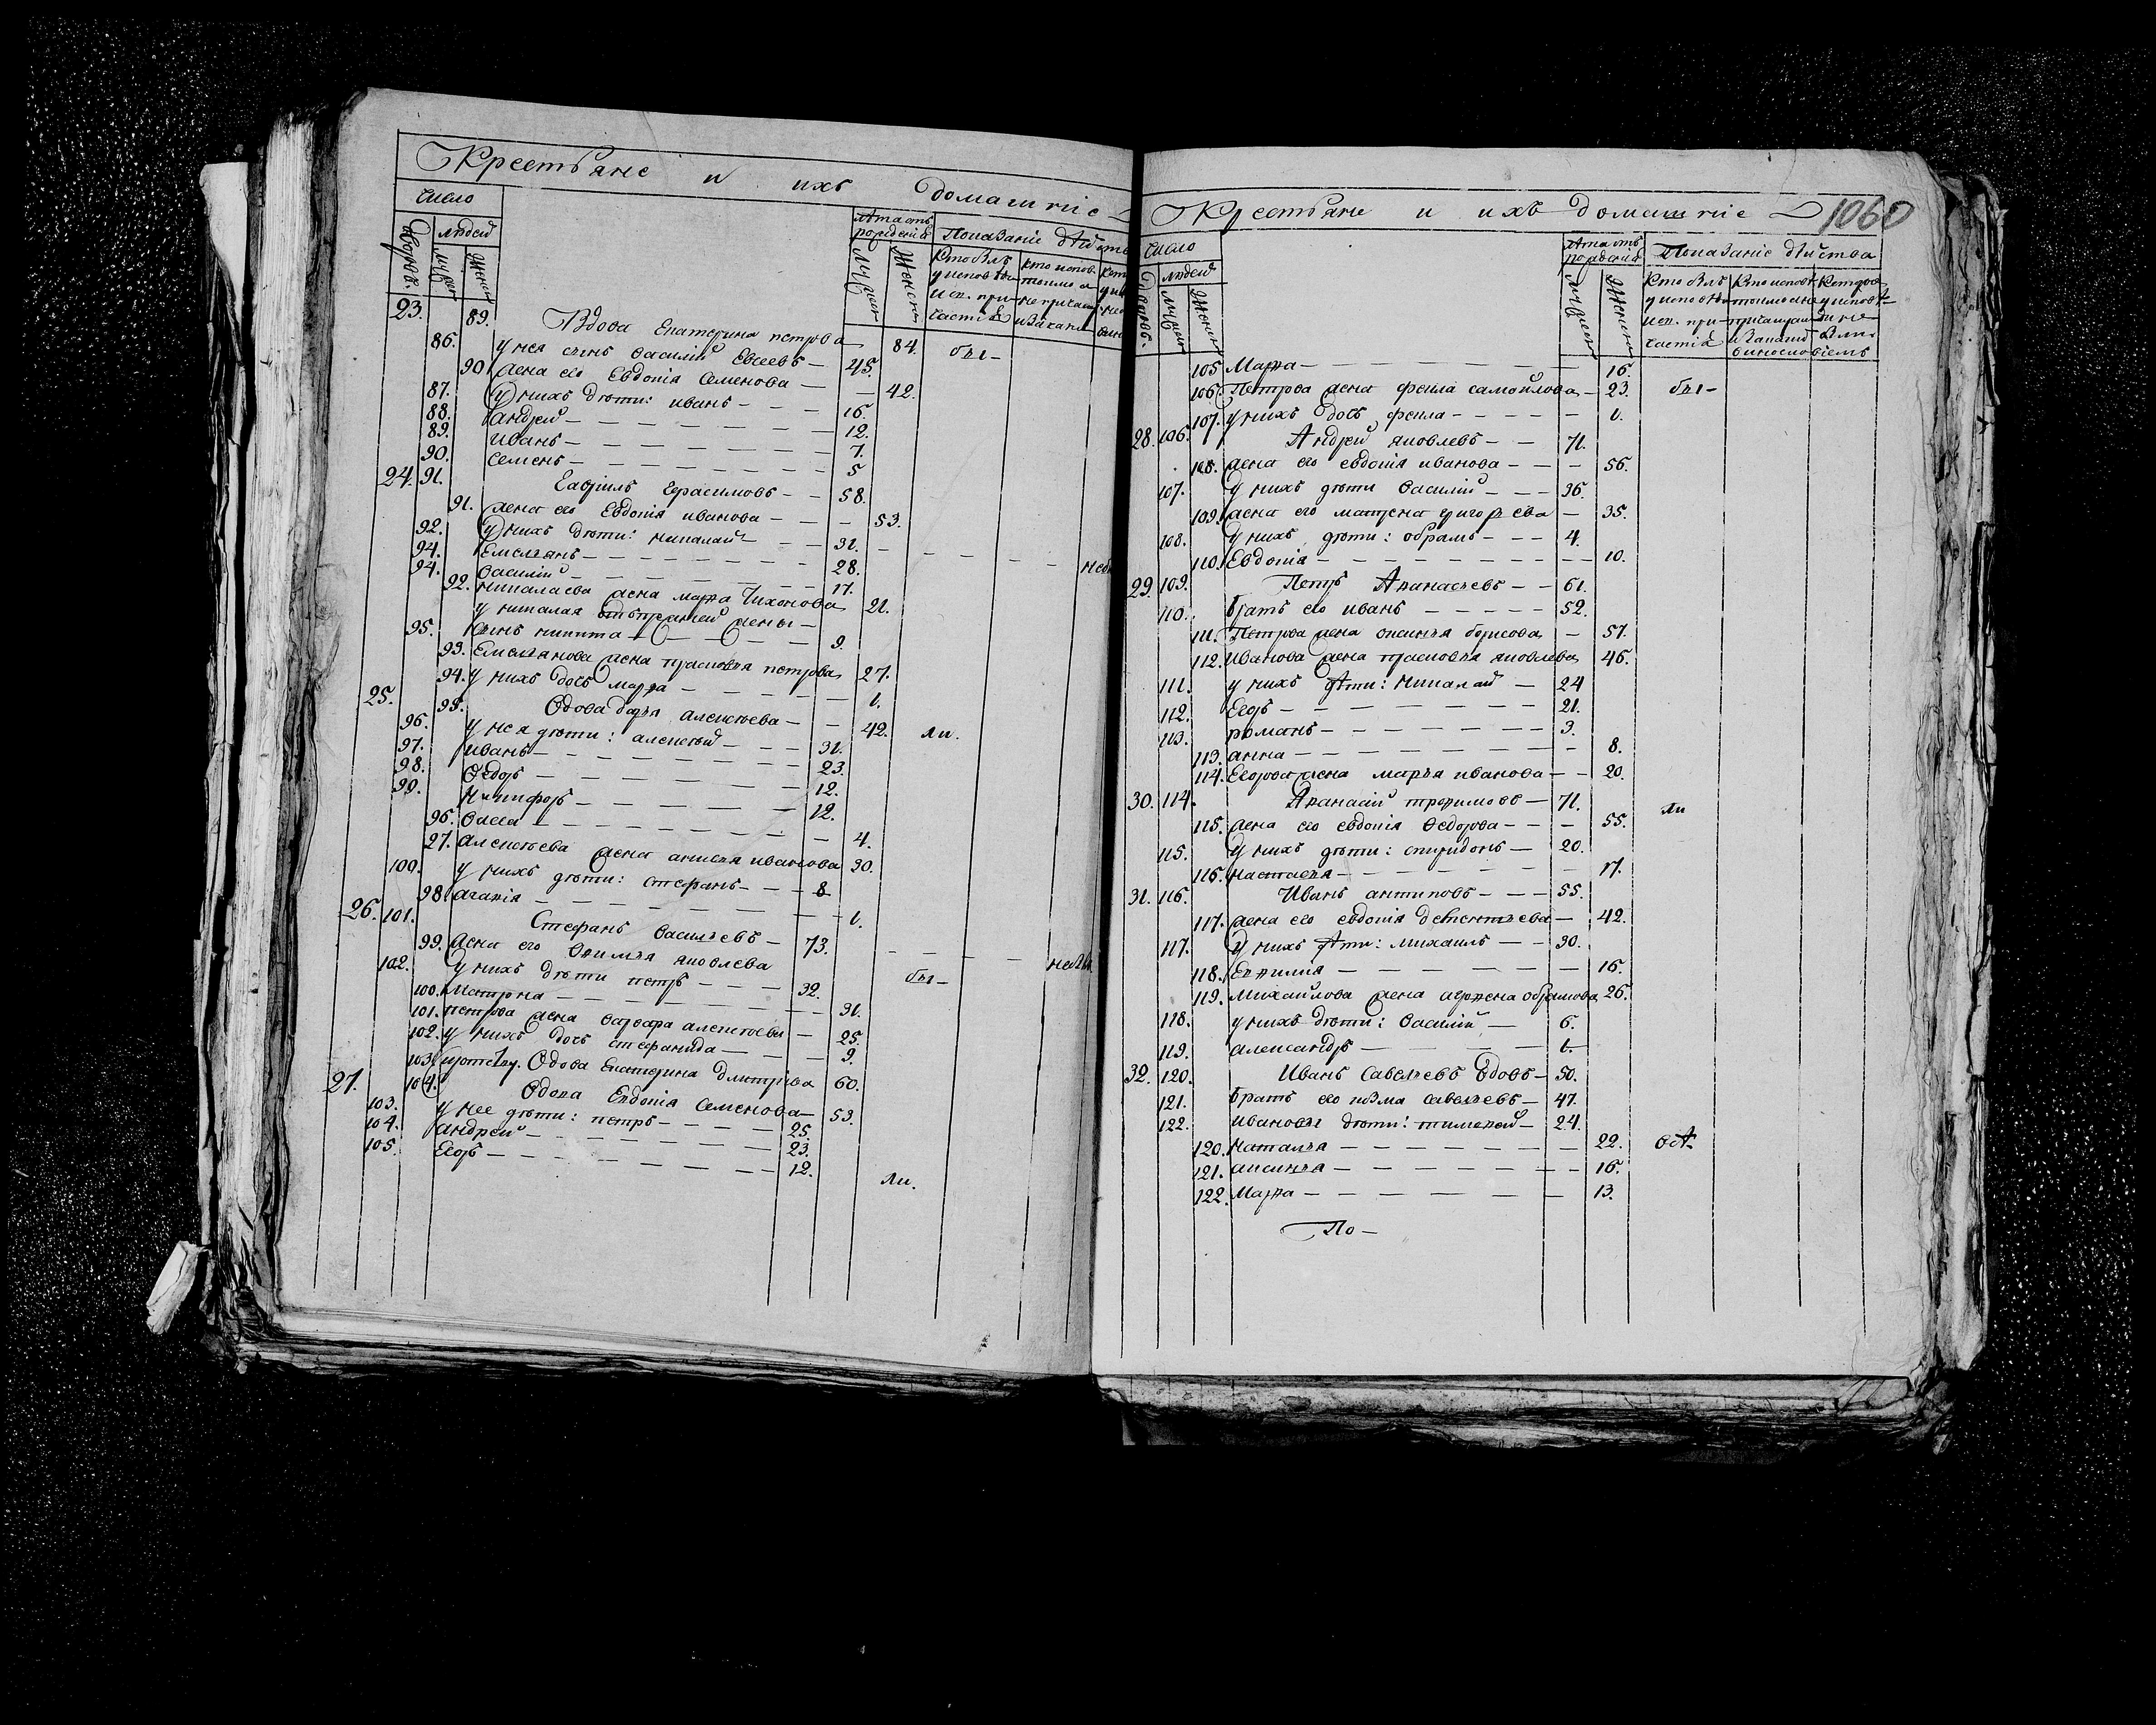 Крестьяне и ихъ домашние
Число
лѣта отъ рождения
Показание дѣйства
Дворовъ
людей
мужеск
женск
мужеск
женск
Кто былъ у исповѣди и св. причастія
кто исповѣ. токмо а не причащ. и за каким
23. 89. Вдова Екатерина петрова — 84. бы-
86. у нея сынъ василий Евсеевъ — 45.
90 жена его Евдокія Семенова — — 42.
87. у нихъ дѣти: иванъ - - - 16.
88. андрей — — — — 12.
89. иванъ — — — — 7.
90. семенъ — — — — 5
24. 91. Гавріилъ Герасимовъ - - 58.
91. жена его Евдокія иванова - - - 53.
92. у нихъ дѣти: николай - - 31.
94. Емельянъ — — — — 28.
94. василій — — — — 17.
92. николаева жена марѳа тихонова 21.
у николая отъ прежней жены —
95. сынъ никита — — — 9.
93. Емельянова жена прасковья петрова 27.
94. у нихъ дочь марѳа — — — 1.
25. 95. вдова дарья алексѣева — — 42. ли.
96. у нея дѣти: алексѣй — — — 31.
97. иванъ — — — — 23.
98. Ѳедоръ — — — — 12.
99. Никифоръ — — — — 12.
96. — — — — 4.
27. алексѣева жена анисья иванова 30.
100. у нихъ дѣти: стефанъ - - - 8
98. агапія — — — — 1.
26. 101. Стефанъ васильевъ — 73.
99. жена его яковлева
102. у нихъ дѣти петръ - - - 32. бы-
100. матрона — — — — 31.
101. петрова жена варвара алексѣева — 25.
102. у нихъ дочь стефанида — — — 9.
103. вдова Екатерина дмитріева 60.
27. 104. вдова Евдокія Семенова — 53.
103. у нее дѣти: петръ — — — 25.
104. андрей — — — — 23.
105. Егоръ — — — — 12. ли.
Крестьяне и ихъ домашние
1060
Число
лѣта отъ рождения
Показание дѣйства
людей
Кто былъ у исповѣди и св. причастія
105 Марѳа — — — — 16.
106. Петрова жена фекла самойлова - 23. бы-
107. у нихъ дочь фекла - - - - 1.
28. 106. Андрей яковлевъ - - 71.
108. жена его евдокія иванова - - - 56.
107. у нихъ дѣти василій - - - 36.
109. жена его матрена григорьева — 35.
108. у нихъ дѣти: обрамъ - - - 4.
110. Евдокія — — — — 10.
29. 109. Петръ Афанасьевъ - - 61.
110. братъ его иванъ - - - - - 52.
111. Петрова жена аксинья борисова — 57.
112. Иванова жена прасковья яковлева 46.
111. у нихъ дѣти: николай — 24
112. Егоръ — — — — 21.
113. романъ — — — — 3.
113. анна — — — — 8.
114. Егорова жена марья иванова — — 20.
30. 114. Афанасій трофимовъ — 71. ли
115. жена его евдокія Ѳедорова — — — 55.
115. у нихъ дѣти: спиридонъ — 20.
116. настасья — — — — 17.
31. 116. Иванъ антиповъ - - - 55.
117. жена его евдокія дементьева — 42.
117. у нихъ дѣти: михаилъ — - 30.
118. — — — — 16.
119. Михайлова жена обрамова 26.
118. у нихъ дѣти: василій — 6.
119. александръ — — — 1.
32. 120. Иванъ савельевъ вдовъ — 50.
121. братъ его козма савельевъ — 47.
122. ивановы дѣти: тимофей — 24.
120. наталья — — — — 22.
121. аксинья — — — — 16.
122. Марѳа — — — — 13.
По —